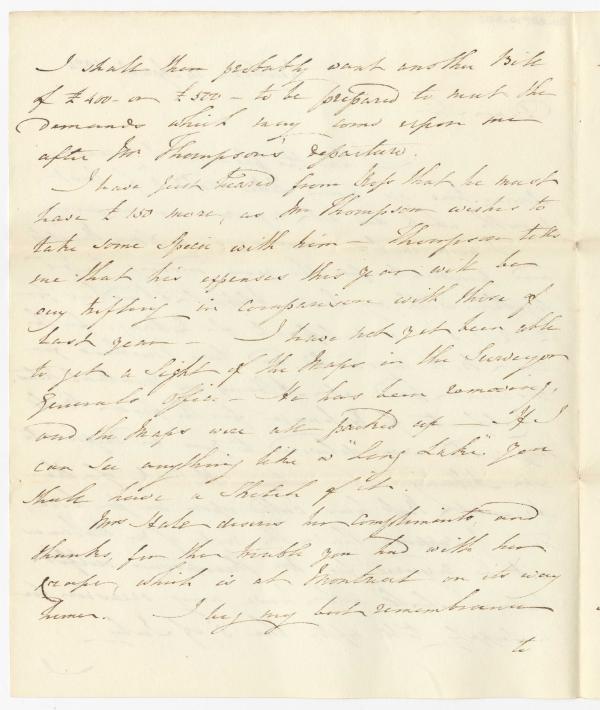 I shall then probably want another Bill
of £400 - or £500 - to be prepared to meet the
Demands which may come upon me
after Mr Thompson's departure.
I have just heard from Hoss that he must
have £150 more, as Mr Thompson wishes to
take some Specie with him - Thompson tells
me that his expenses this year will be
very trifling in comparison with those of
last year - I have not yet been able
to get a Sight of the Maps in the Surveyor
Generals Office - He has been removing,
and the Maps were all packed up - If I
can see anything like a "Long Lake" you
shall have a Sketch of it.
Mrs Hale desires her compliments, and
thanks, for the trouble you had with her
crape, which is at Montreal on its way
hither. I beg my best remembrances
to